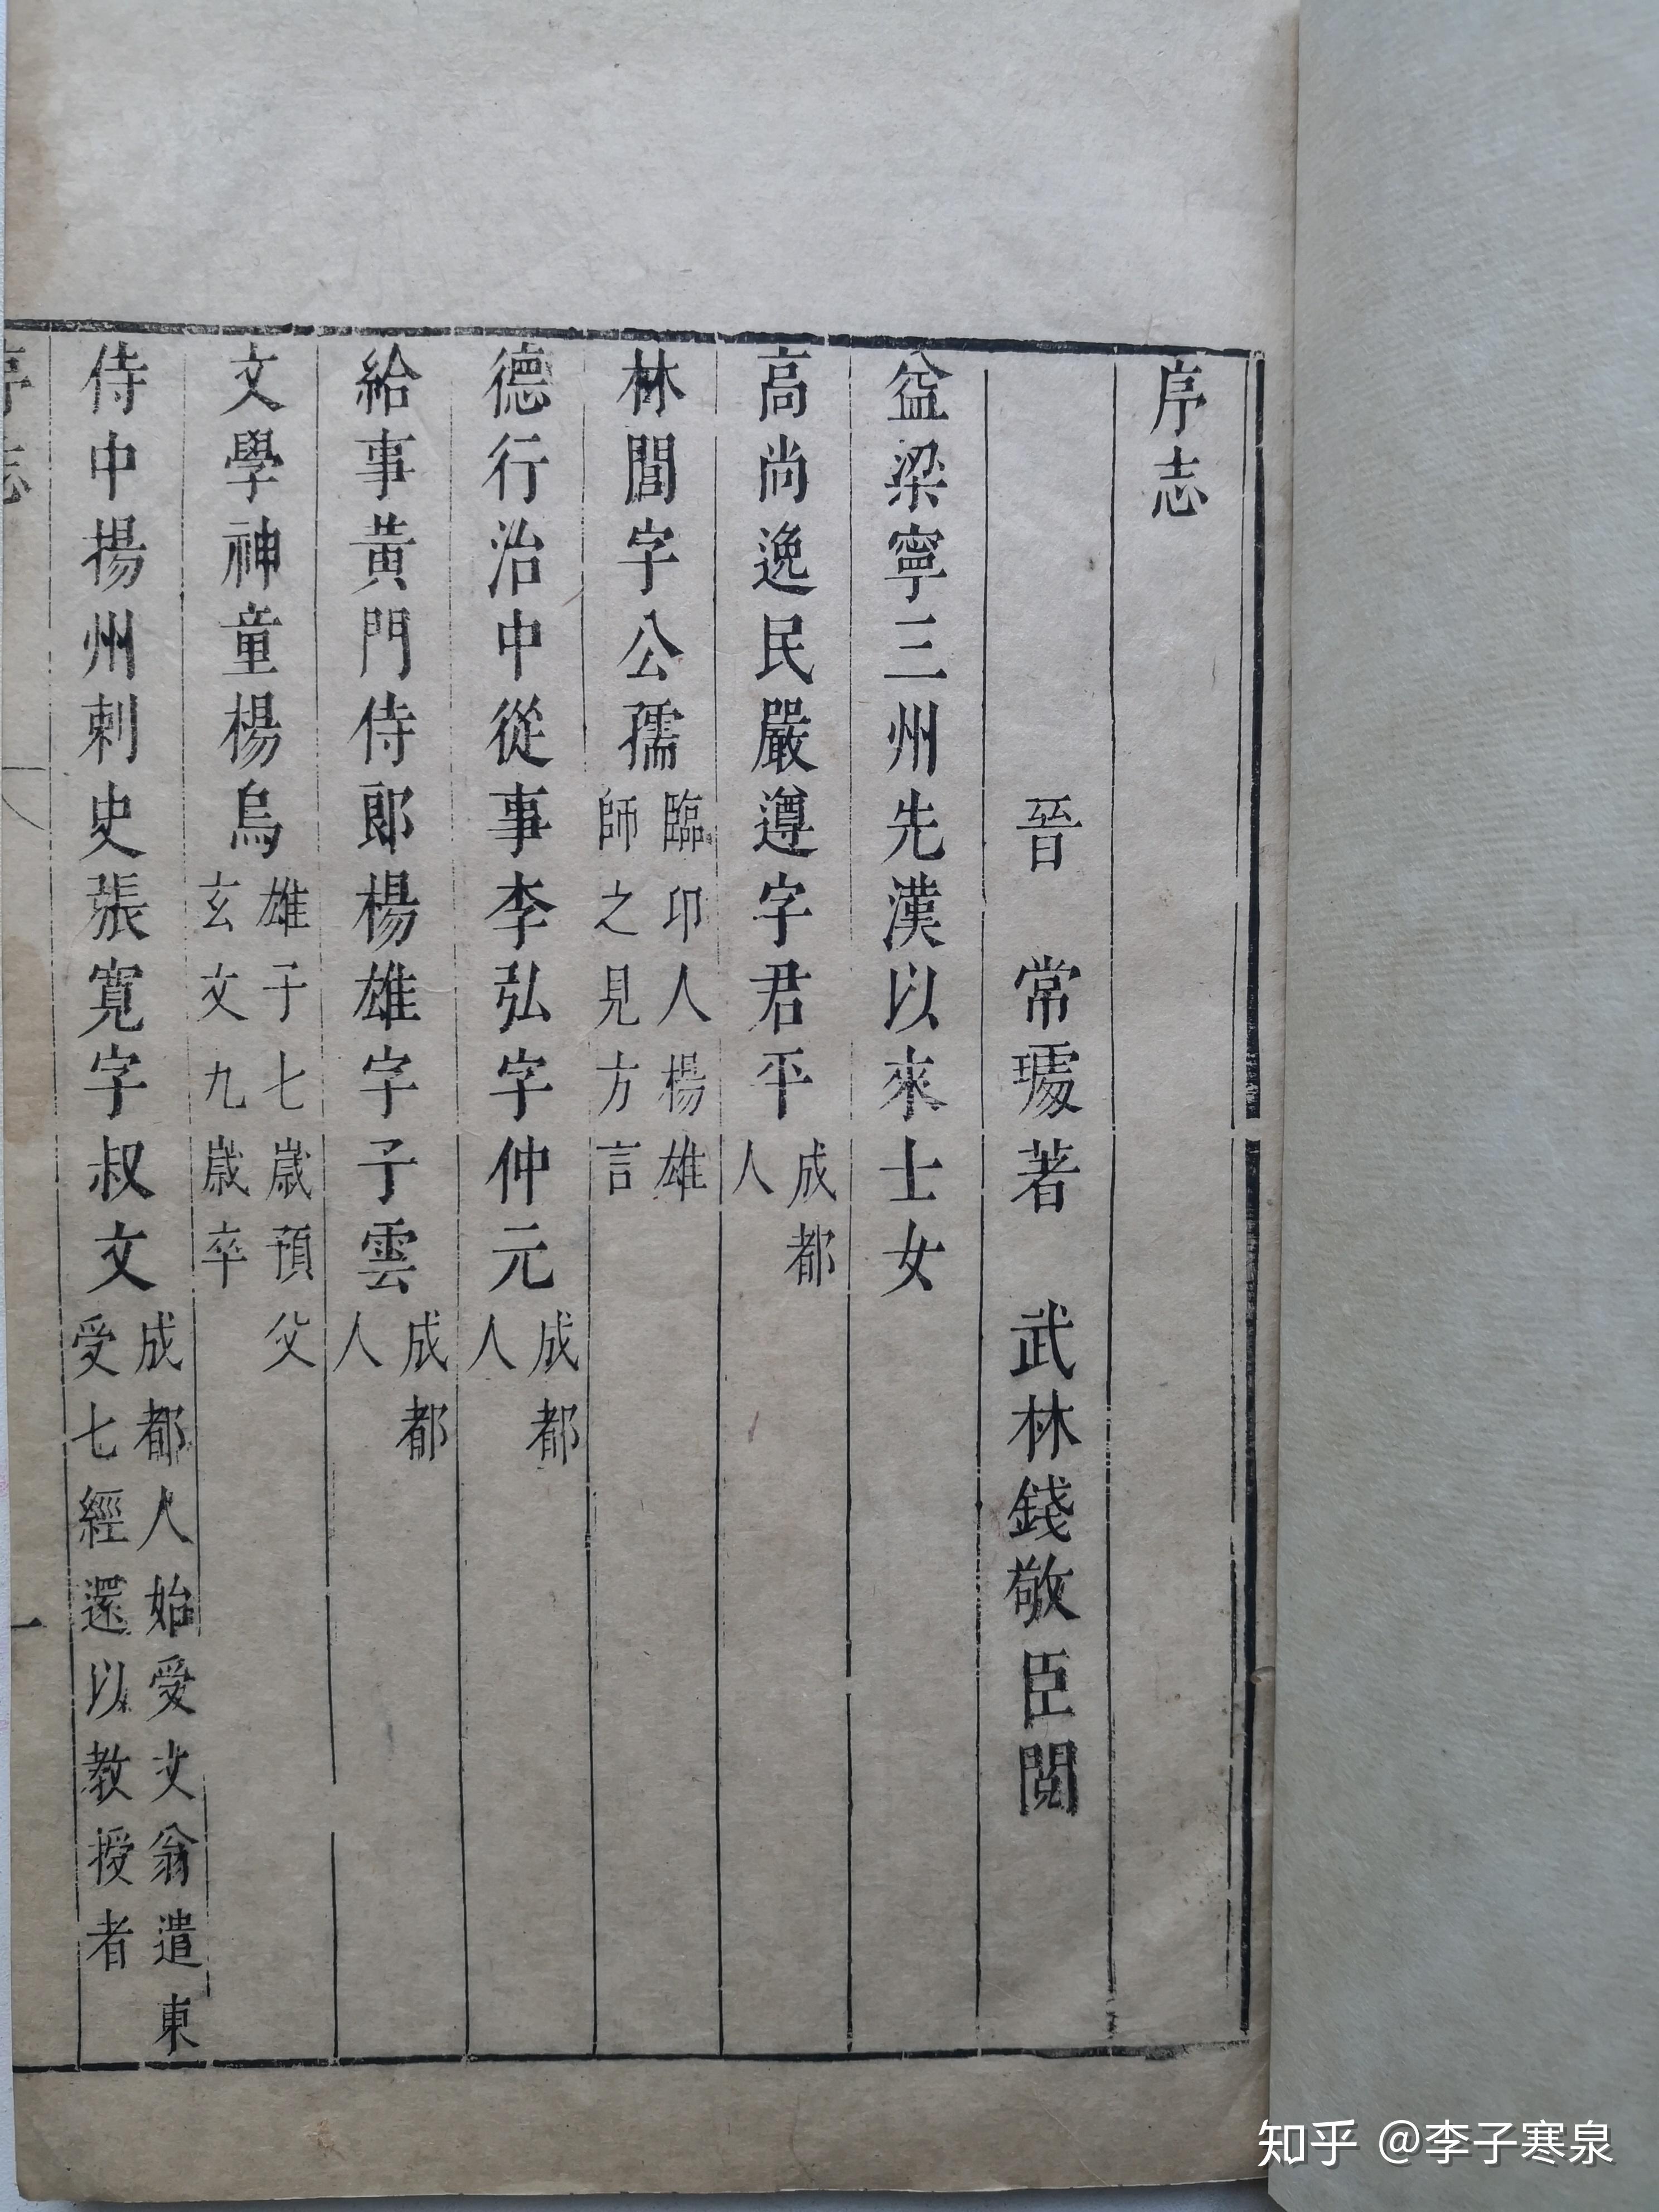 序志
晉 常璩著 武林錢敬臣閱
益梁寧三州先漢以來士女
高尚逸民嚴遵字君平成都人
林閭字公孺臨卭人楊雄師之見方言
德行治中從事李弘字仲元成都人
給事黃門侍郎楊雄字子雲成都人
文學神童楊烏雄子七歲預父玄文九歲卒
侍中揚州刺史張寬字叔文成都人始受文翁遣東受七經還以教授者
序志 一
知乎 @李子寒泉